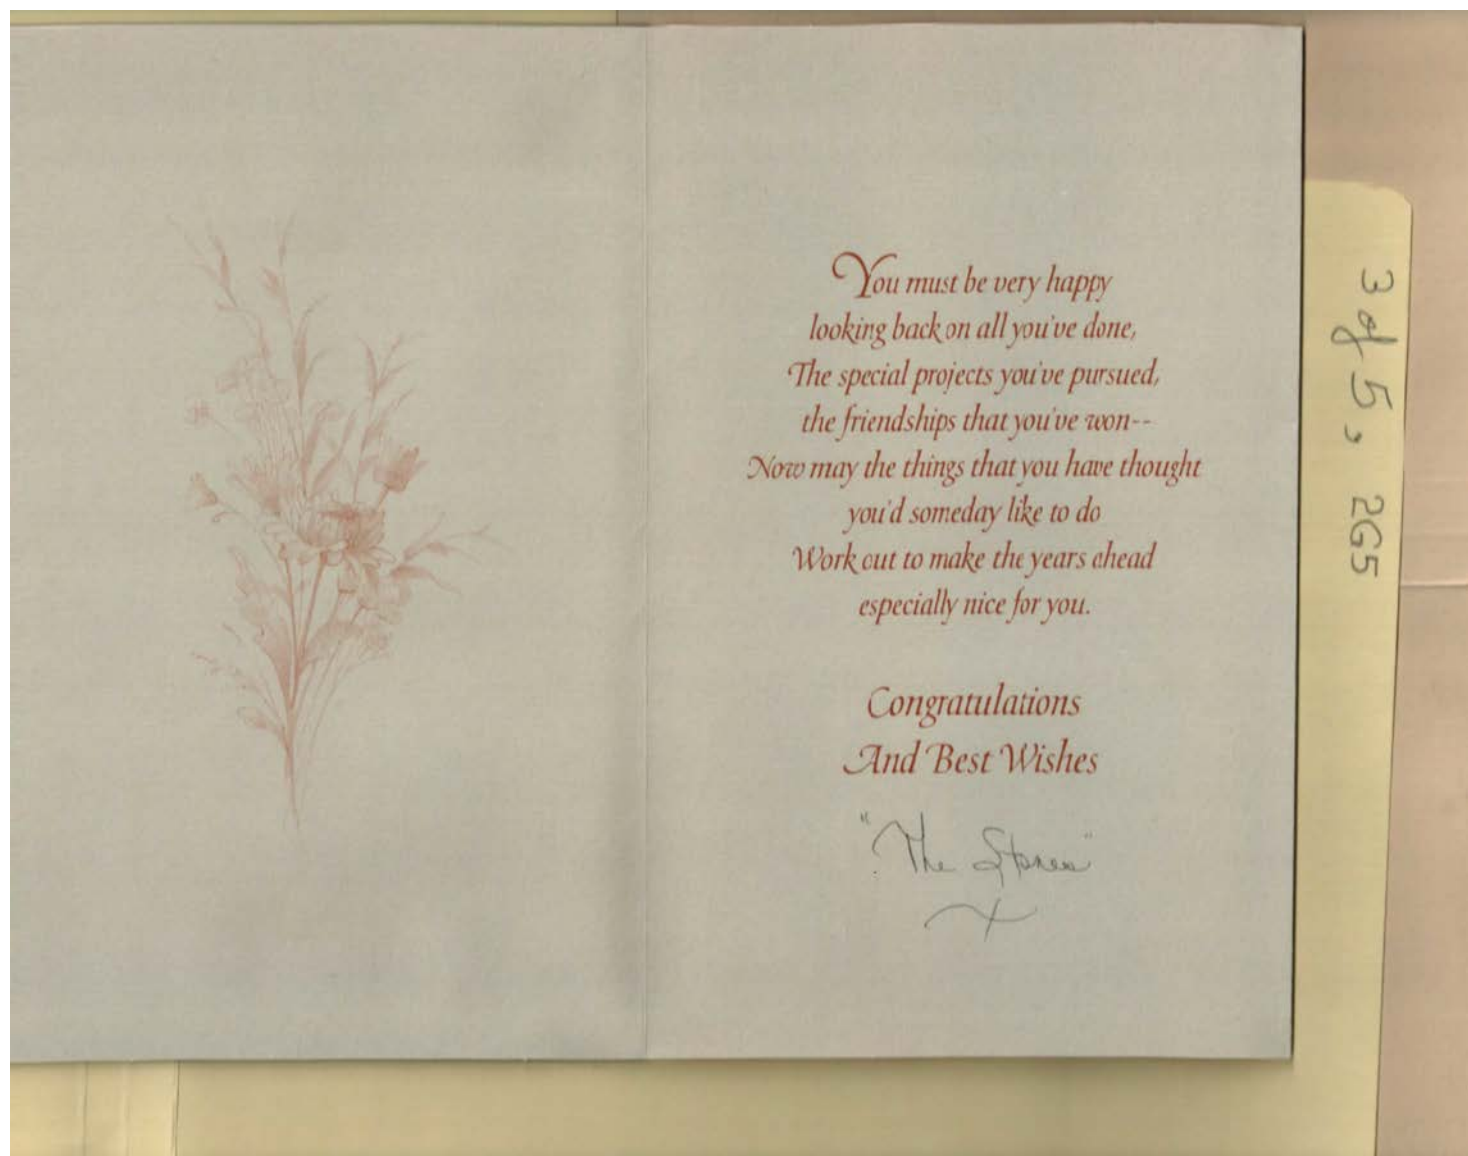 You must be very happy
looking back on all you've done,
The special projects you've pursued,
the friendships that you've won--
Now may the things that you have thought
you'd someday like to do
Work out to make the years ahead
especially nice for you.
Congratulations
And Best Wishes
"The Stones"
3 of 5, 2G5